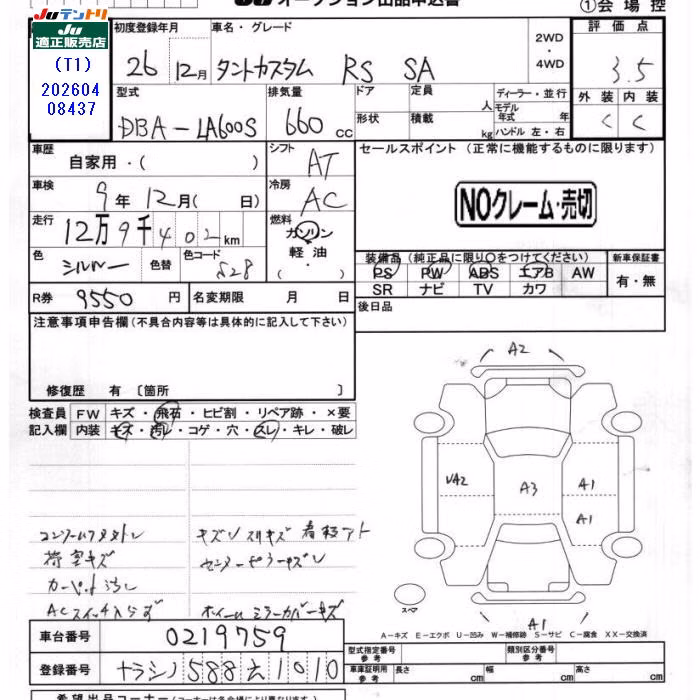 Juテントリ
Ju
適正販売店
(T1)
202604
08437
Ju オークション出品申込書
①会場控
初度登録年月
車名・グレード
評価点
26 12月
タントカスタム RS SA
2WD
・
4WD
3.5
型式
排気量
ドア
定員
人
ディーラー・並行
外装 内装
DBA-LA600S
660 cc
形状
積載
kg
モデル年式 年
ハンドル 左・右
C C
車歴
自家用・( )
シフト
AT
セールスポイント (正常に機能するものに限ります)
車検
9年12月( 日)
冷房
AC
NOクレーム・売切
走行
12万9千402km
燃料
ガソリン
・
軽油
・
( )
色
シルバー
色替
色コード
S28
装備品(純正品に限り○をつけてください)
新車保証書
PS PW ABS エアB AW
SR ナビ TV カワ
有・無
R券 9550円 名変期限 月 日
後日品
注意事項申告欄(不具合内容等は具体的に記入して下さい)
修復歴 有 〔箇所 〕
検査員
記入欄
FW キズ・飛石・ヒビ割・リペア跡・×要
内装 キズ・汚レ・コゲ・穴・スレ・キレ・破レ
A2
UA2
A3
A1
A1
A1
スペア
荷室キズ
A-キズ E-エクボ U-凹み W-補修跡 S-サビ C-腐食 XX-交換済
車台番号 0219759
登録番号 ナラシノ588え1010
型式指定番号
参考
類別区分番号
参考
車庫証明用
参考
長さ cm 幅 cm 高さ cm
希望出品コーナー(コーナーは各会場により異なります)